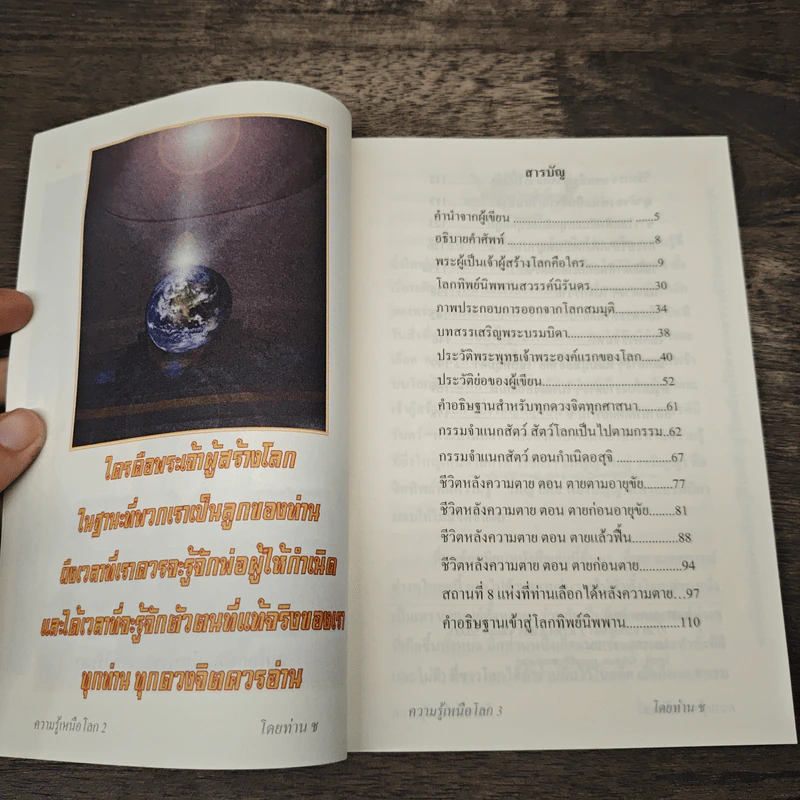 ใครคือพระเจ้าผู้สร้างโลก
ในฐานะที่พวกเราเป็นลูกของท่าน
ถึงเวลาที่เราควรจะรู้จักพ่อผู้ให้กำเนิด
และได้เวลาที่จะรู้จักตัวตนที่แท้จริงของเรา
ทุกท่าน ทุกดวงจิตควรอ่าน
ความรู้เหนือโลก 2 โดยท่าน ช
สารบัญ
คำนำจากผู้เขียน ...................................... ......5
อธิบายคำศัพท์ ...............................................8
พระผู้เป็นเจ้าผู้สร้างโลกคือใคร......................9
โลกทิพย์นิพพานสวรรค์นิรันดร....................30
ภาพประกอบการออกจากโลกสมมุติ.............34
บทสรรเสริญพระบรมบิดา...........................38
ประวัติพระพุทธเจ้าพระองค์แรกของโลก......40
ประวัติย่อของผู้เขียน.....................................52
คำอธิษฐานสำหรับทุกดวงจิตทุกศาสนา.........61
กรรมจำแนกสัตว์ สัตว์โลกเป็นไปตามกรรม..62
กรรมจำแนกสัตว์ ตอนกำเนิดอสุจิ ..............67
ชีวิตหลังความตาย ตอน ตายตามอายุขัย.........77
ชีวิตหลังความตาย ตอน ตายก่อนอายุขัย........81
ชีวิตหลังความตาย ตอน ตายแล้วฟื้น.............88
ชีวิตหลังความตาย ตอน ตายก่อนตาย.............94
สถานที่ 8 แห่งที่ท่านเลือกได้หลังความตาย...97
คำอธิษฐานเข้าสู่โลกทิพย์นิพพาน................110
ความรู้เหนือโลก 3 โดยท่าน ช